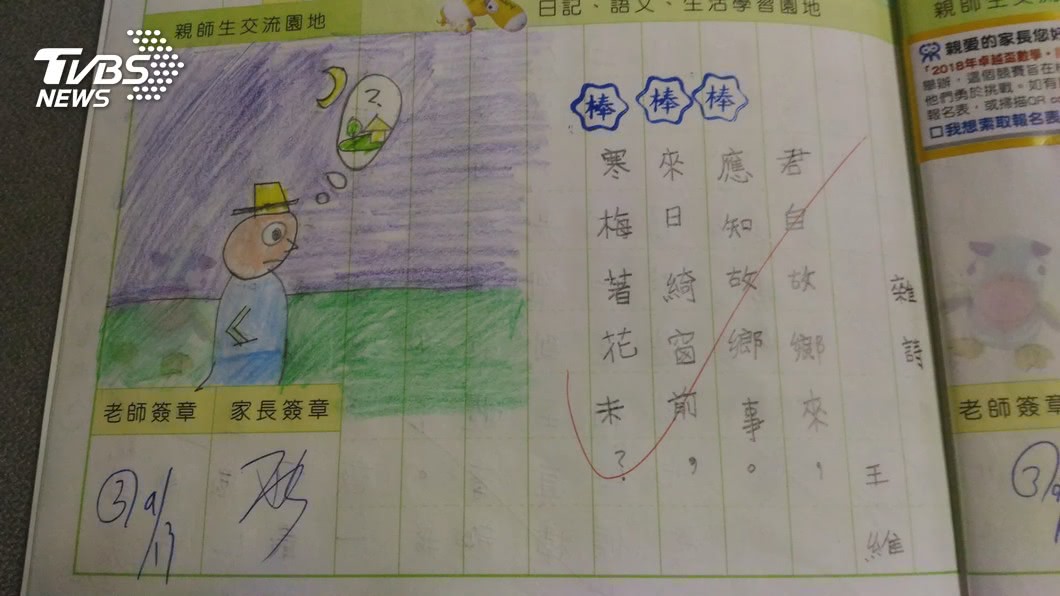 TVBS
NEWS
親師生交流園地
日記、語文、生活學習園地
棒 棒 棒
雜詩
王維
君自故鄉來,
應知故鄉事。
來日綺窗前,
寒梅著花未?
?
老師簽章
家長簽章
③ 9/13
親師生交流
親愛的家長您好
「2018年卓越盃數學、
舉辦,這個競賽旨在
他們勇於挑戰。如有
報名表,或掃描QR
□我想索取報名表
老師簽章
③